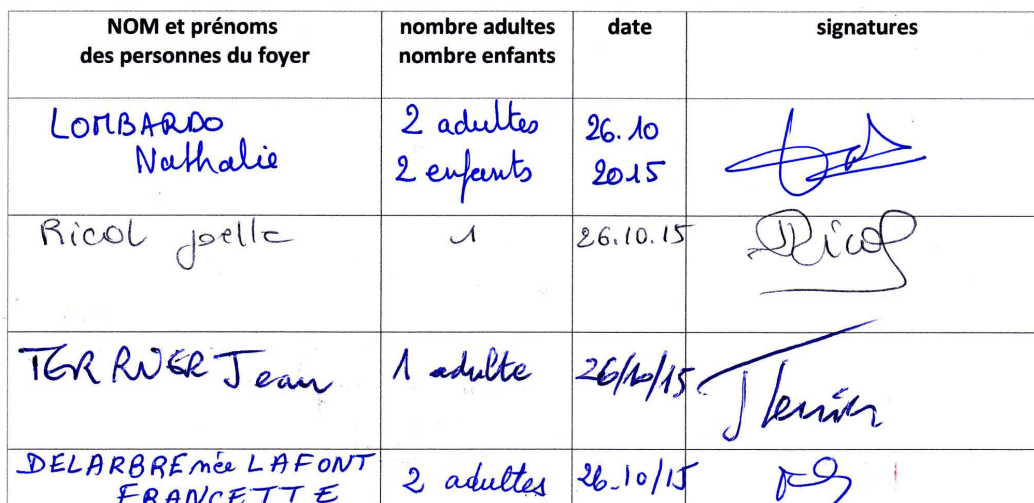 NOM et prénoms
des personnes du foyer
nombre adultes
nombre enfants
date
signatures
LOMBARDO
Nathalie
2 adultes
2 enfants
26.10
2015
Ricol joelle
1
26.10.15
Ricol
Jean
1 adulte
26/10/15
DELARBRE née LAFONT
FRANCETTE
2 adultes
26.10/15